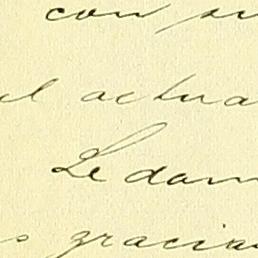 con su
el actua
Le dam
s gracia